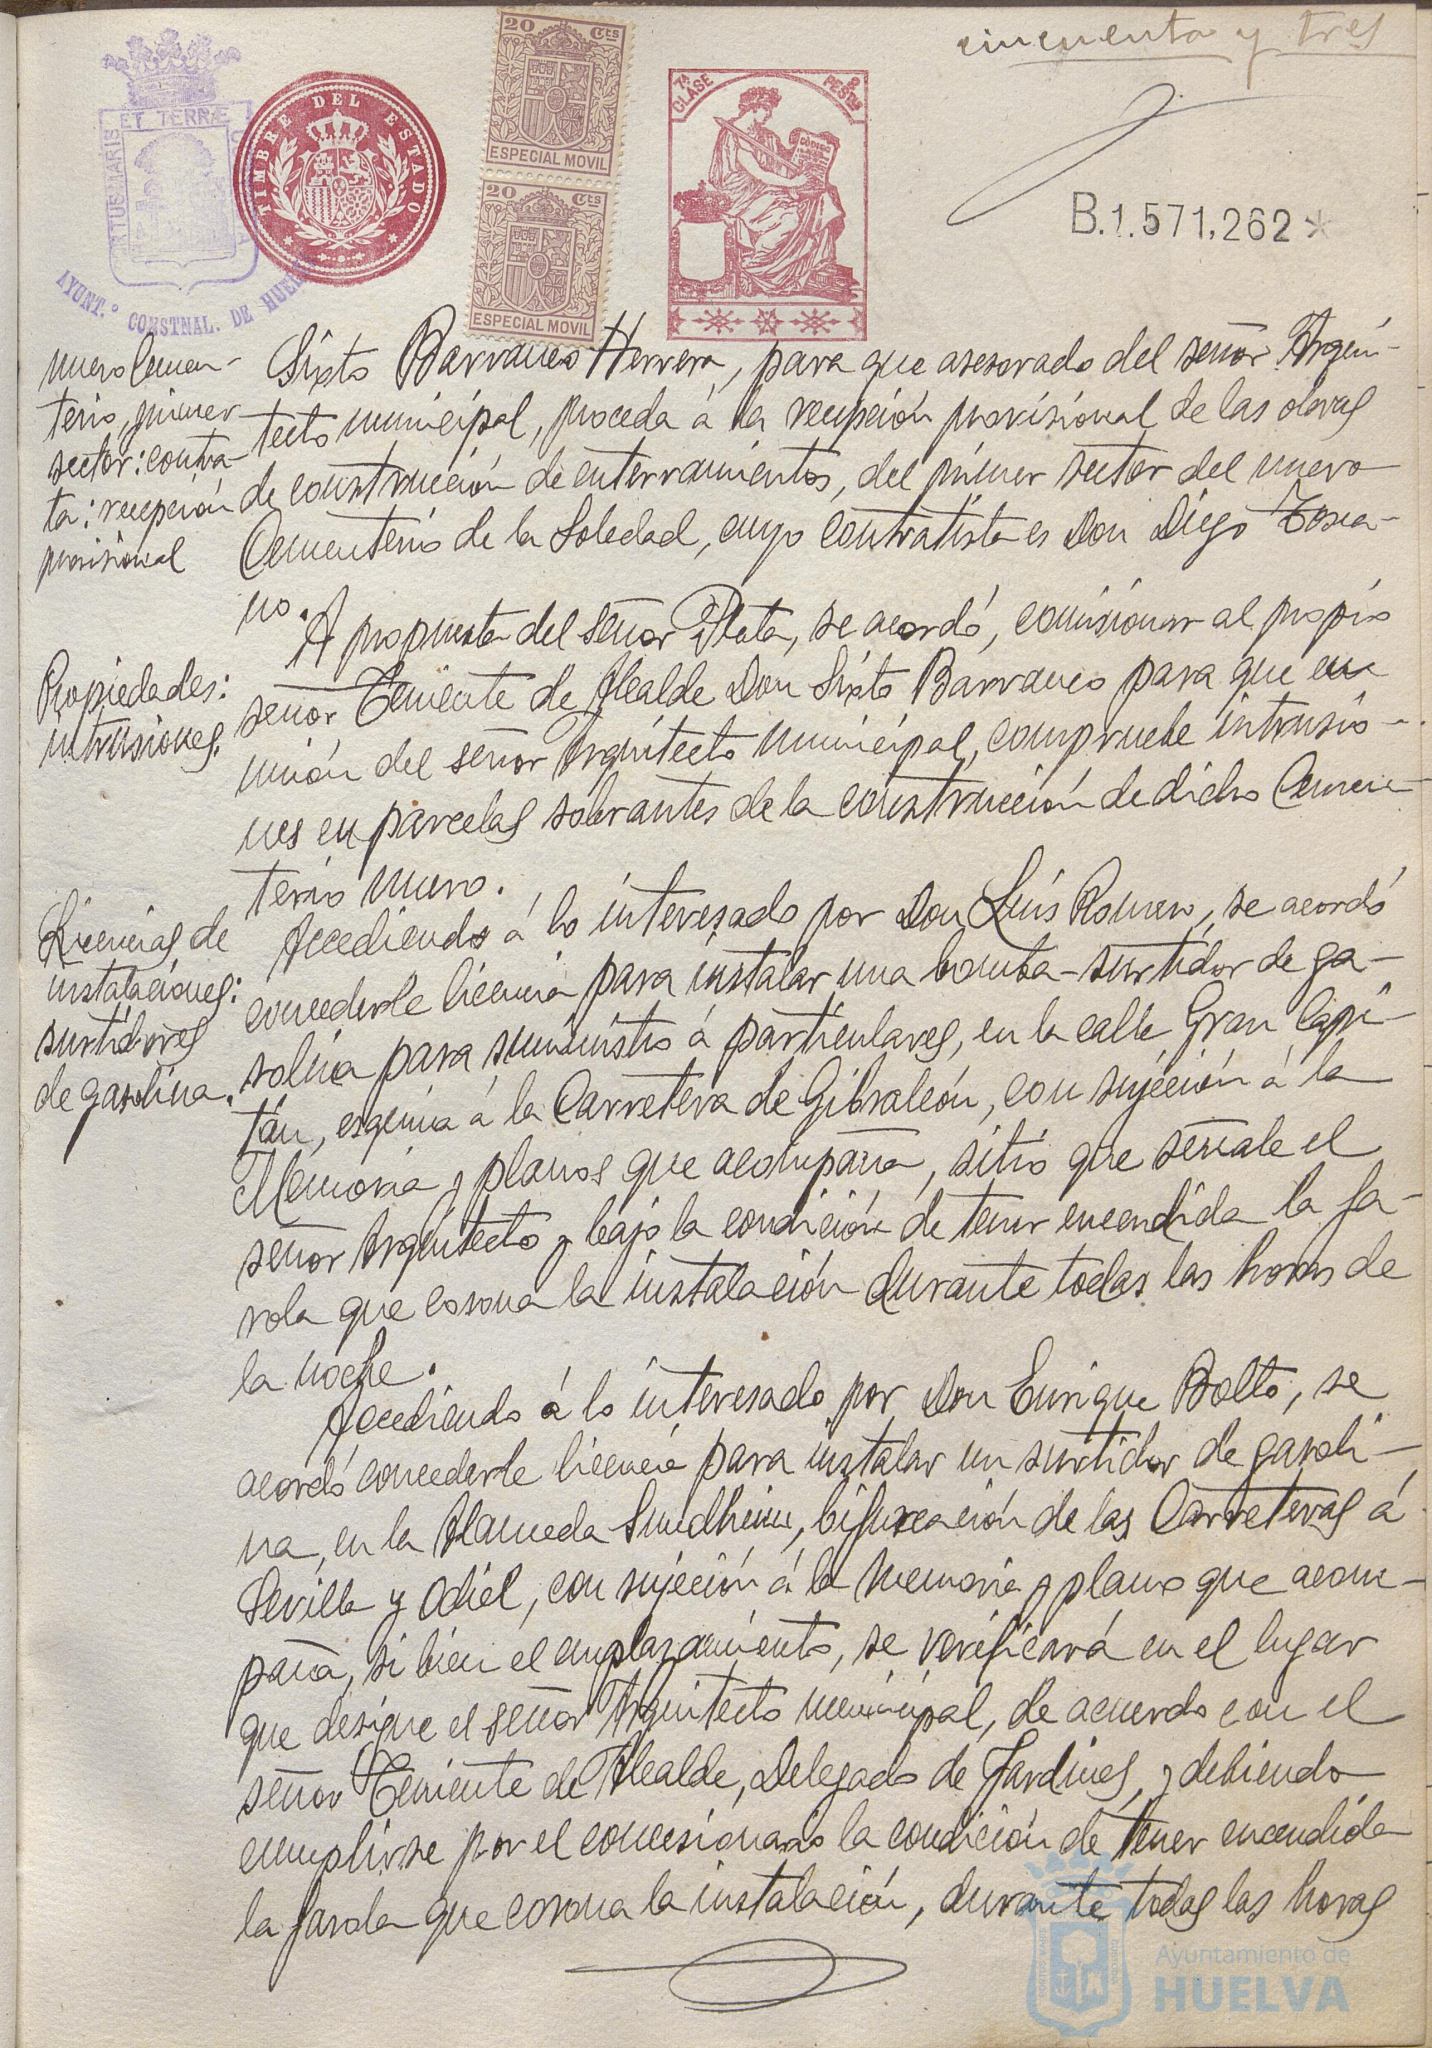 cincuenta y tres
ET TERRÆ
AYUNT.º CONSTNAL. DE HUELVA
TIMBRE DEL ESTADO
20 Cts
ESPECIAL MOVIL
20 Cts
ESPECIAL MOVIL
7ª CLASE
PESTAS
CÓDIGO
B.1.571,262*
nuevo Cemen-
terio, primer
sector: contra-
ta: recepción
provisional
Sixto Barranco Herrera, para que asesorado del señor Arqui-
tecto municipal, proceda á la recepción provisional de las obras
de construcción de enterramientos, del primer sector del nuevo
Cementerio de la Soledad, cuyo contratista es Don Diego Tosca-
no.
Propiedades:
intrusiones.
A propuesta del señor Plata, se acordó, comisionar al propio
señor Teniente de Alcalde Don Sixto Barranco para que en
unión del señor Arquitecto municipal, compruebe intrusio-
nes en parcelas sobrantes de la construcción de dicho Cemen-
terio nuevo.
Licencias de
instalaciones:
surtidores
de gasolina.
Accediendo á lo interesado por Don Luís Romero, se acordó
concederle licencia para instalar una bomba-surtidor de ga-
solina para suministro á particulares, en la calle Gran Capi-
tán, esquina á la Carretera de Gibraleón, con sujeción á la
Memoria y planos que acompaña, sitio que señale el
señor Arquitecto y bajo la condición de tener encendida la fa-
rola que corona la instalación durante todas las horas de
la noche.
Accediendo á lo interesado por Don Enrique Bolto, se
acordó concederle licencia para instalar un surtidor de gasoli-
na, en la Alameda Sundheim, bifurcación de las Carreteras á
Sevilla y Odiel, con sujeción á la memoria y plano que acom-
paña, si bien el emplazamiento, se verificará en el lugar
que designe el señor Arquitecto municipal, de acuerdo con el
señor Teniente de Alcalde, Delegado de Jardines, y debiendo
cumplirse por el concesionario la condición de tener encendida
la farola que corona la instalación, durante todas las horas
Ayuntamiento de
HUELVA